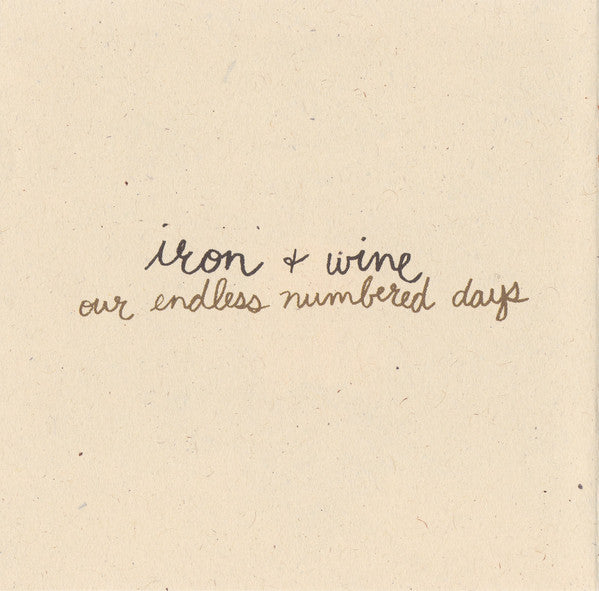 iron & wine
our endless numbered days